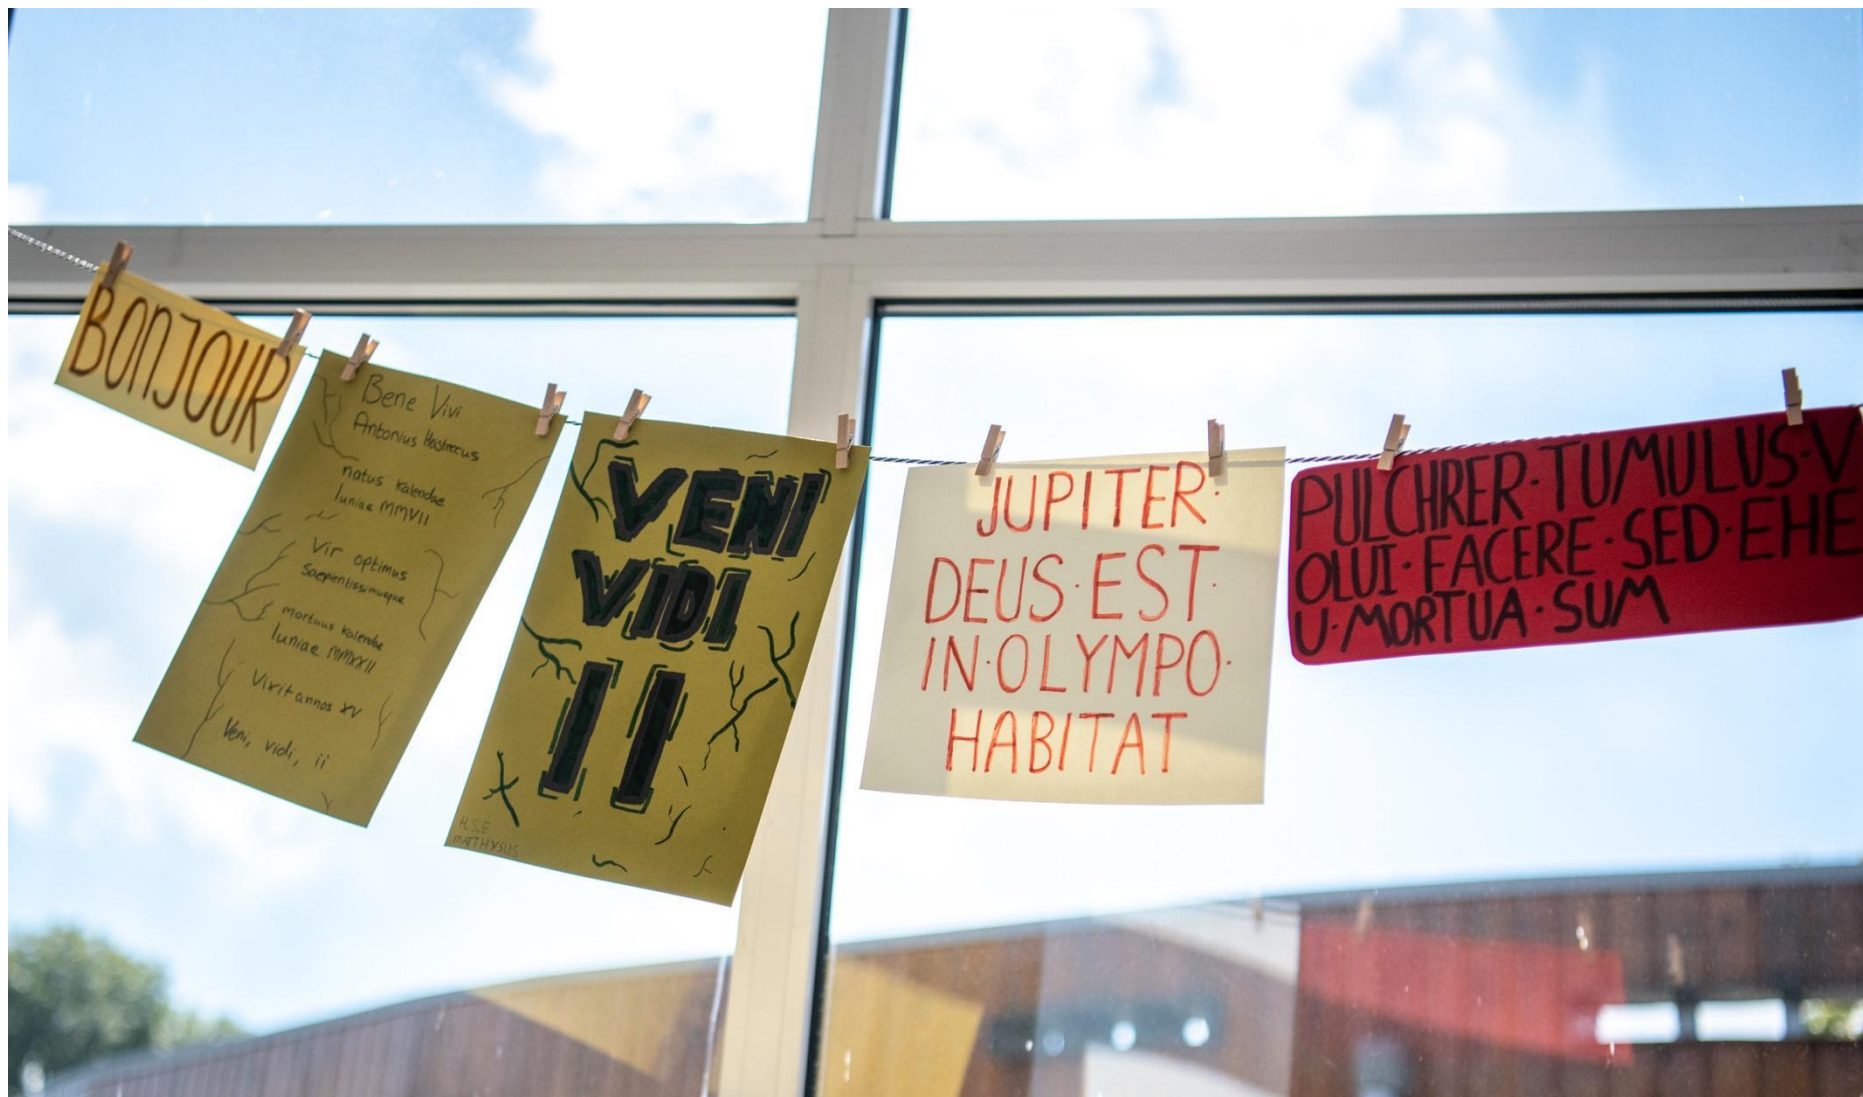 BONJOUR
Bene Vivi
Antonius
natus Kalendae
Iuniae MMVII
Vir optimus
Saepientissimusque
mortuus Kalendae
Iuniae MMXXII
Vixit annos XV
Veni, vidi, ii
VENI
VIDI
II
H.S.E
MATTHYSUS
JUPITER·
DEUS·EST·
IN·OLYMPO·
HABITAT
PULCHRER·TUMULUS·V
OLUI·FACERE·SED·EHE
U·MORTUA·SUM